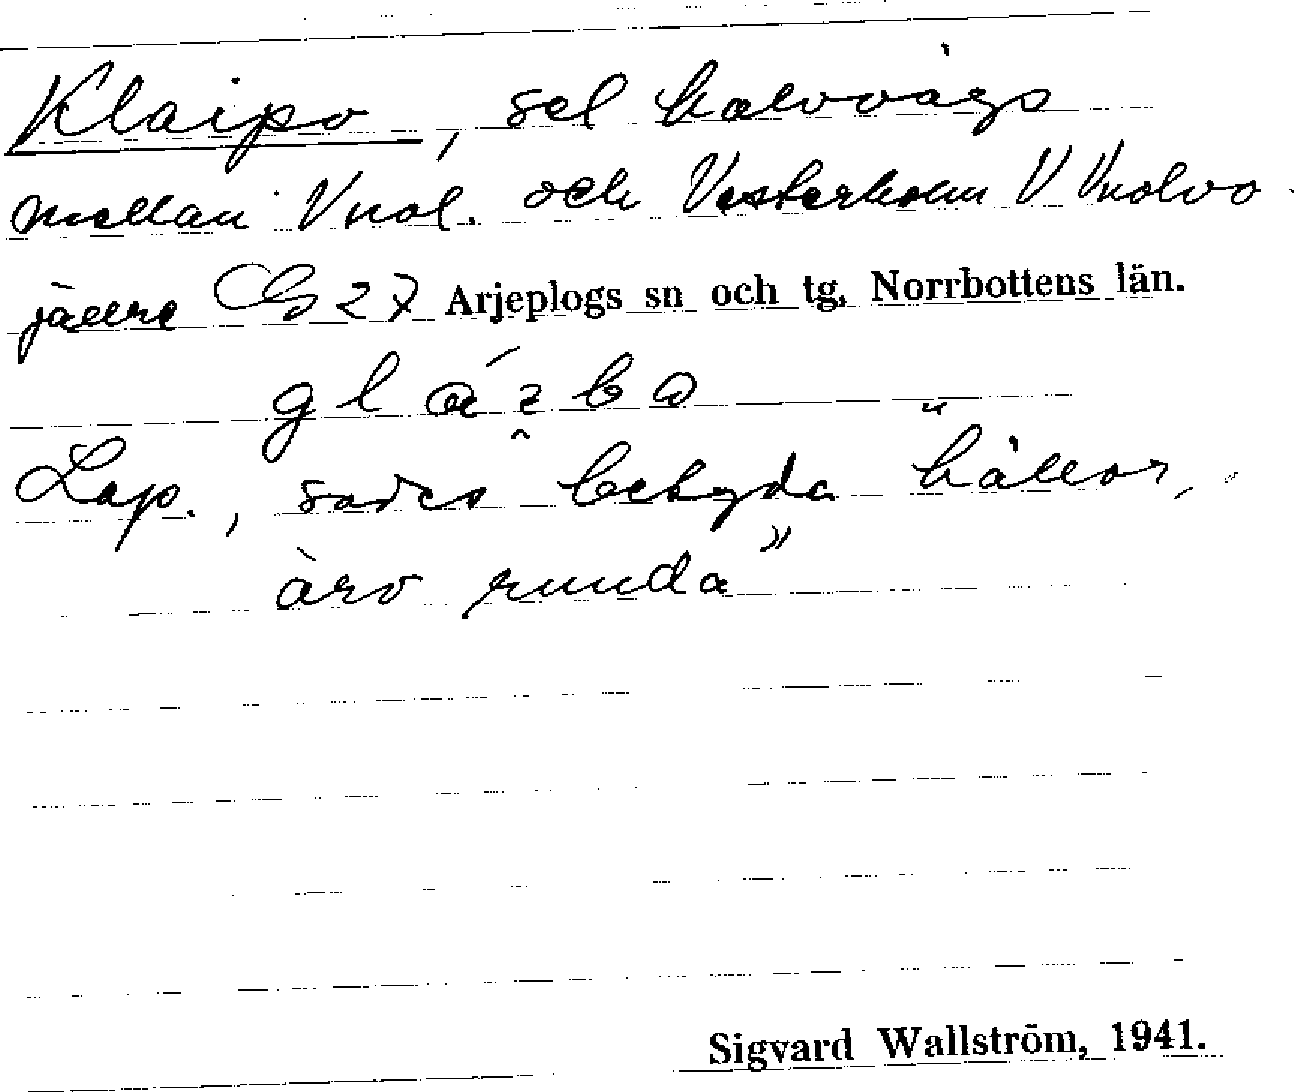 Klaipo, sel halvvägs
mellan Vuol. och Västerholm V Vuolvo-
jaure CG 27 Arjeplogs sn och tg. Norrbottens län.
Lap., sades betyda "hällor,
äro runda"
Sigvard Wallström, 1941.